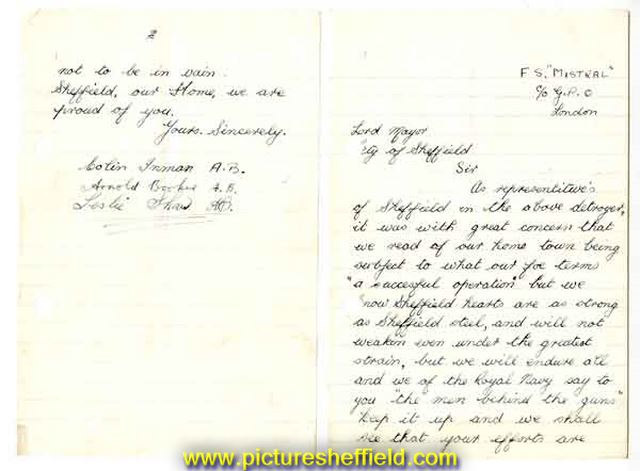 F S. "MISTRAL"
C/o G.P.O
London
Lord Mayor
ty of Sheffield
Sir
As representitive's
of Sheffield in the above detroyer,
it was with great concern that
we read of our home town being
subject to what our foe terms
"a succesful operation" but we
now Sheffield hearts are as strong
as Sheffield steel, and will not
weaken even under the greatest
strain, but we will endure all
and we of the Royal Navy say to
you "the men behind the guns"
keep it up and we shall
see that your efforts are
2
not to be in vain.
Sheffield, our Home, we are
proud of you.
Yours. Sincerely.
Colin Inman A.B.
Arnold A.B.
Leslie AB.
www.picturesheffield.com